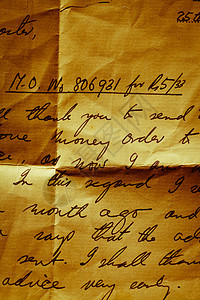 25.12
ster,
M.O. No 806931 for Rs 5/33
ll thank you to send t
one money order to
e, or now I am
In this regard I
month ago and
says that the ad
sent. I shall than
advice very early.